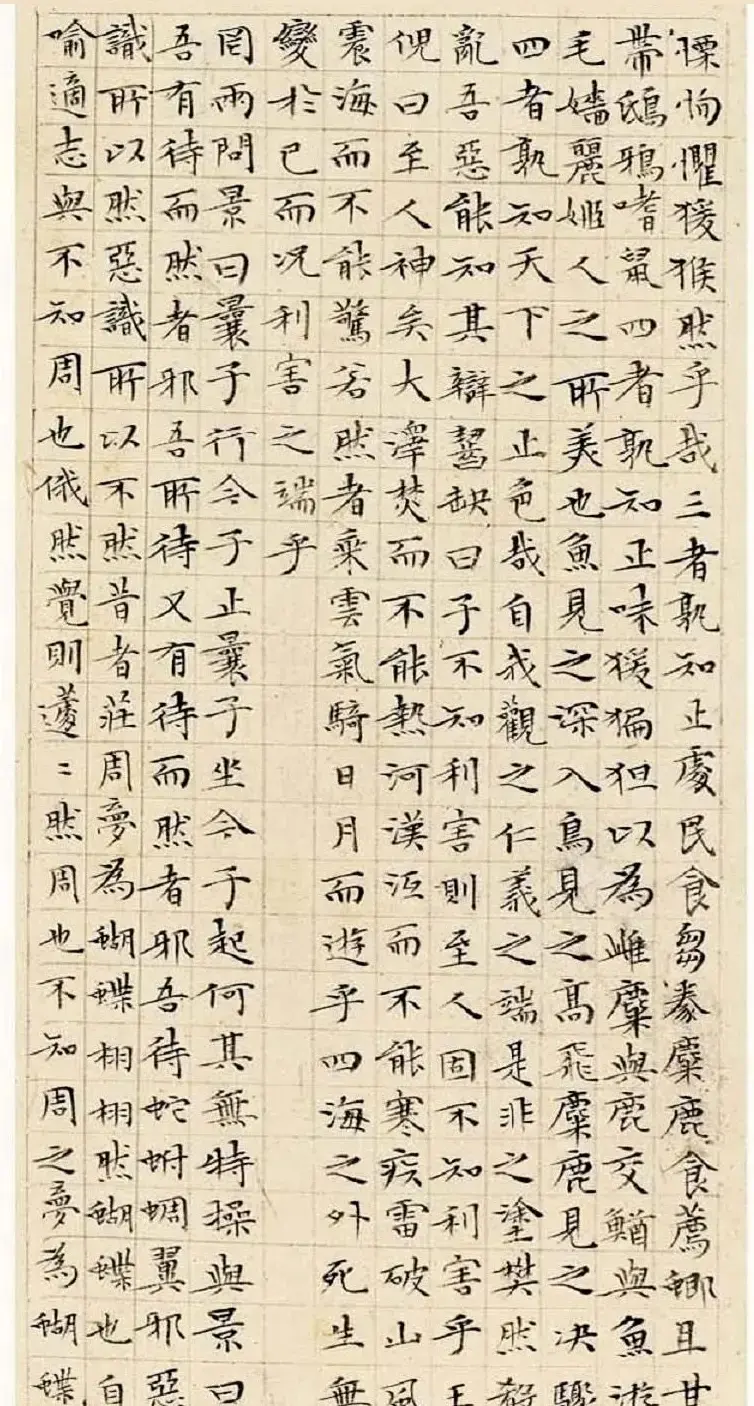 慄恂懼猨猴然乎哉三者孰知正處民食芻豢麋鹿食薦蝍且甘
帶鴟鴉嗜鼠四者孰知正味猨猵狙以為雌麋與鹿交鰌與魚游
毛嬙麗姬人之所美也魚見之深入鳥見之高飛麋鹿見之决驟
四者孰知天下之正色哉自我觀之仁義之端是非之塗樊然殽
亂吾惡能知其辯齧缺曰子不知利害則至人固不知利害乎王
倪曰至人神矣大澤焚而不能熱河漢沍而不能寒疾雷破山風
震海而不能驚若然者乘雲氣騎日月而遊乎四海之外死生無
變於已而况利害之端乎
罔兩問景曰曩子行今子止曩子坐今子起何其無特操與景曰
吾有待而然者邪吾所待又有待而然者邪吾待蛇蚹蜩翼邪惡
識所以然惡識所以不然昔者莊周夢為蝴蝶栩栩然蝴蝶也自
喻適志與不知周也俄然覺則蘧〻然周也不知周之夢為蝴蝶